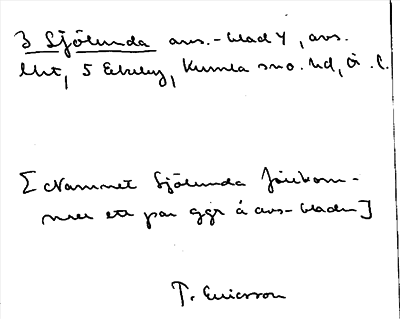 3 Sjölunda avs.-blad 4, avs.
lht, 5 Ekeby, Kumla sn o. hd, Ö.l.
[Namnet Sjölunda förekom-
mer ett par ggr å avs-bladen]
T. Ericsson